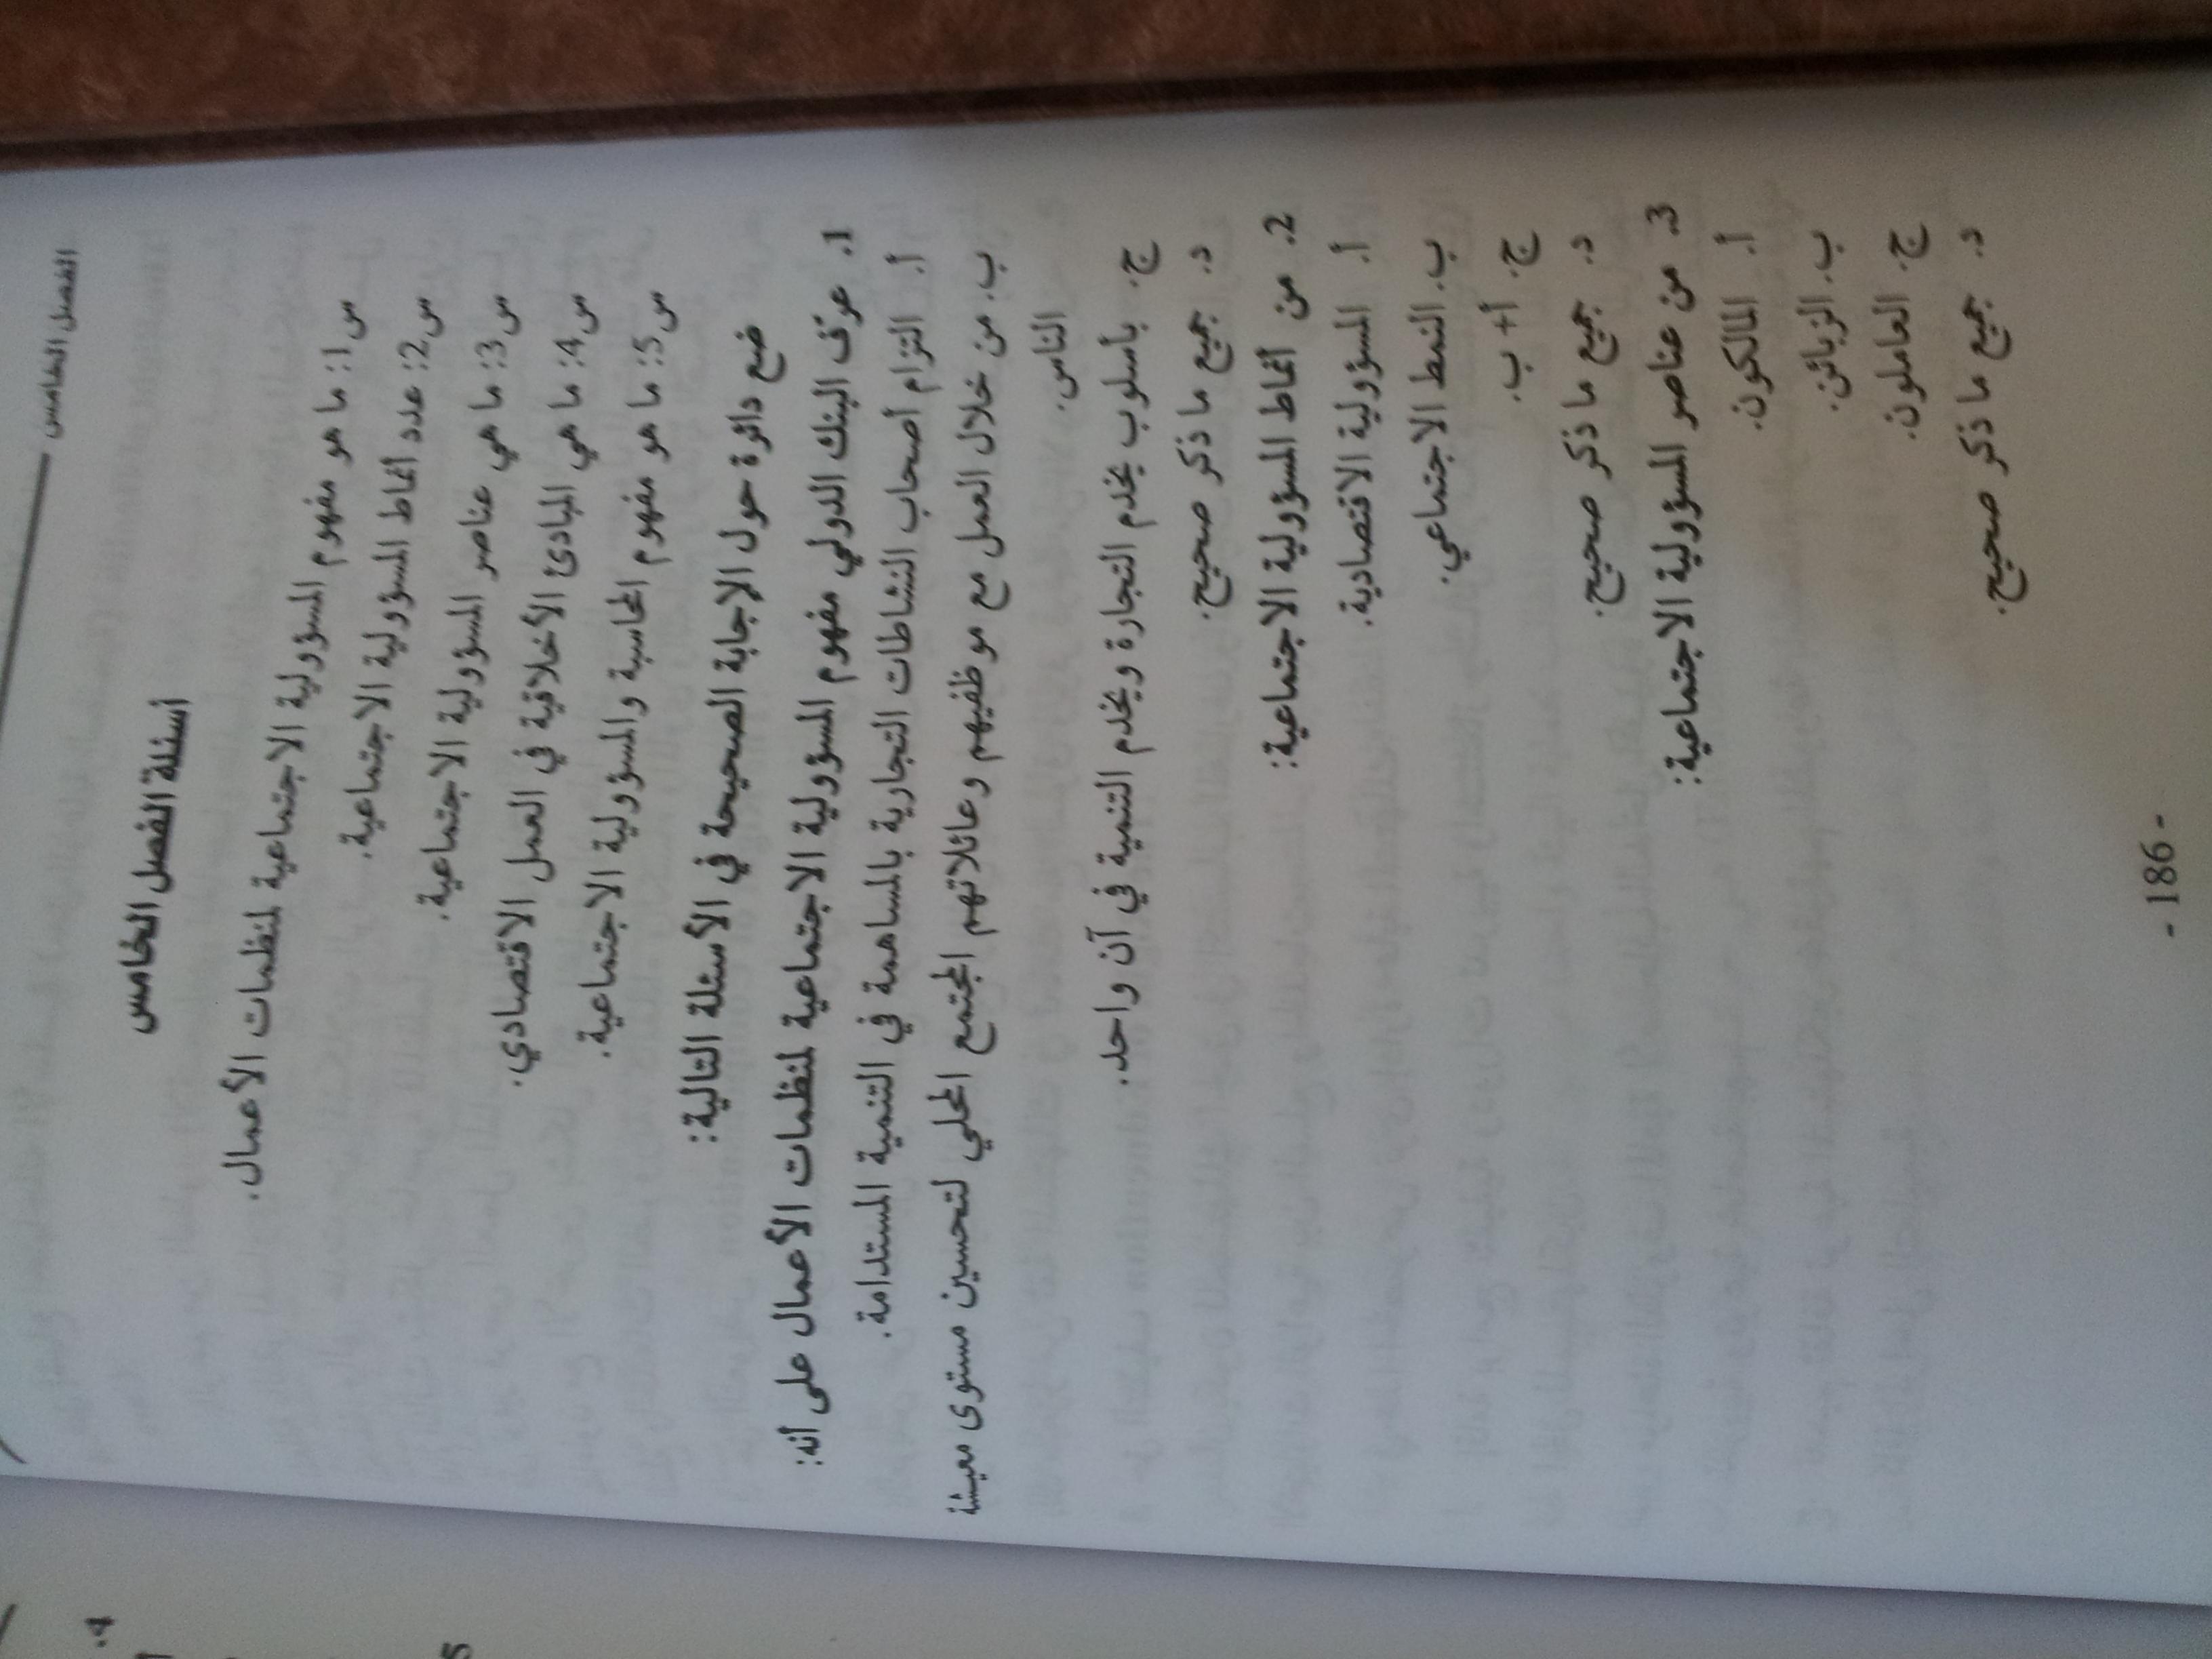 الفصل الخامس
أسئلة الفصل الخامس
س1: ما هو مفهوم المسؤولية الاجتماعية لمنظمات الأعمال.
س2: عدد أنماط المسؤولية الاجتماعية.
س3: ما هي عناصر المسؤولية الاجتماعية.
س4: ما هي المبادئ الأخلاقية في العمل الاقتصادي.
س5: ما هو مفهوم المحاسبة والمسؤولية الاجتماعية.
ضع دائرة حول الإجابة الصحيحة في الأسئلة التالية:
1. عرّف البنك الدولي مفهوم المسؤولية الاجتماعية لمنظمات الأعمال على أنه:
أ. التزام أصحاب النشاطات التجارية بالمساهمة في التنمية المستدامة.
ب. من خلال العمل مع موظفيهم وعائلاتهم المجتمع المحلي لتحسين مستوى معيشة
الناس.
ج. بأسلوب يخدم التجارة ويخدم التنمية في آن واحد.
د. جميع ما ذكر صحيح.
2. من أنماط المسؤولية الاجتماعية:
أ. المسؤولية الاقتصادية.
ب. النمط الاجتماعي.
ج. أ+ ب.
د. جميع ما ذكر صحيح.
3. من عناصر المسؤولية الاجتماعية:
أ. المالكون.
ب. الزبائن.
ج. العاملون.
د. جميع ما ذكر صحيح.
- 186 -
4.
5